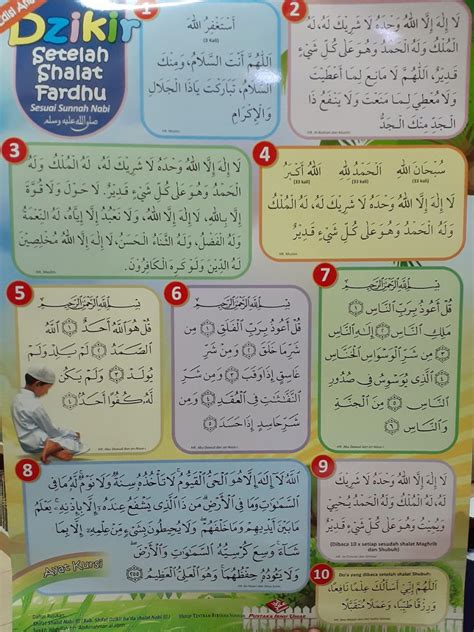 Edisi Anak
Dzikir
Setelah
Shalat
Fardhu
Sesuai Sunnah Nabi
صلى الله عليه وسلم
1
أَسْتَغْفِرُ اللهَ
(3 Kali)
اَللّٰهُمَّ أَنْتَ السَّلَامُ، وَمِنْكَ
السَّلَامُ، تَبَارَكْتَ يَاذَا الْجَلَالِ
وَالْإِكْرَامِ
HR. Muslim
2
لَا إِلٰهَ إِلَّا اللهُ وَحْدَهُ لَا شَرِيكَ لَهُ، لَهُ
الْمُلْكُ وَلَهُ الْحَمْدُ وَهُوَ عَلَى كُلِّ شَيْءٍ
قَدِيْرٌ، اَللّٰهُمَّ لَا مَانِعَ لِمَا أَعْطَيْتَ
وَلَا مُعْطِيَ لِمَا مَنَعْتَ وَلَا يَنْفَعُ ذَا
الْجَدِّ مِنْكَ الْجَدُّ
3
لَا إِلٰهَ إِلَّا اللهُ وَحْدَهُ لَا شَرِيْكَ لَهُ، لَهُ الْمُلْكُ وَلَهُ
الْحَمْدُ وَهُوَ عَلَى كُلِّ شَيْءٍ قَدِيْرٌ. لَا حَوْلَ وَلَا قُوَّةَ
إِلَّا بِاللهِ، لَا إِلٰهَ إِلَّا اللهُ، وَلَا نَعْبُدُ إِلَّا إِيَّاهُ، لَهُ النِّعْمَةُ
وَلَهُ الْفَضْلُ، وَلَهُ الثَّنَاءُ الْحَسَنُ، لَا إِلٰهَ إِلَّا اللهُ مُخْلِصِيْنَ
لَهُ الدِّيْنَ وَلَوْ كَرِهَ الْكَافِرُوْنَ.
HR. Muslim
4
سُبْحَانَ اللهِ الْحَمْدُ لِلهِ اَللهُ أَكْبَرُ
(33 kali) (33 kali) (33 kali)
لَا إِلٰهَ إِلَّا اللهُ وَحْدَهُ لَا شَرِيْكَ لَهُ، لَهُ الْمُلْكُ
وَلَهُ الْحَمْدُ وَهُوَ عَلَى كُلِّ شَيْءٍ قَدِيْرٌ
HR. Muslim
5
بِسْمِ اللهِ الرَّحْمٰنِ الرَّحِيْمِ
قُلْ هُوَ اللهُ أَحَدٌ ۝١ اللهُ
الصَّمَدُ ۝٢ لَمْ يَلِدْ وَلَمْ
يُولَدْ ۝٣ وَلَمْ يَكُنْ
لَهُ كُفُوًا أَحَدٌ ۝٤
6
بِسْمِ اللهِ الرَّحْمٰنِ الرَّحِيْمِ
قُلْ أَعُوذُ بِرَبِّ الْفَلَقِ ۝١ مِنْ
شَرِّ مَا خَلَقَ ۝٢ وَمِنْ شَرِّ
غَاسِقٍ إِذَا وَقَبَ ۝٣ وَمِنْ شَرِّ
النَّفّٰثٰتِ فِي الْعُقَدِ ۝٤ وَمِنْ
شَرِّ حَاسِدٍ إِذَا حَسَدَ ۝٥
HR. Abu Dawud dan an-Nasa-i
7
بِسْمِ اللهِ الرَّحْمٰنِ الرَّحِيْمِ
قُلْ أَعُوذُ بِرَبِّ النَّاسِ ۝١
مَلِكِ النَّاسِ ۝٢ إِلٰهِ النَّاسِ
۝٣ مِنْ شَرِّ الْوَسْوَاسِ الْخَنَّاسِ
۝٤ الَّذِي يُوَسْوِسُ فِي صُدُورِ
النَّاسِ ۝٥ مِنَ الْجِنَّةِ
وَالنَّاسِ ۝٦
HR. Abu Dawud dan an-Nasa-i
8
اللهُ لَا إِلٰهَ إِلَّا هُوَ الْحَيُّ الْقَيُّومُ لَا تَأْخُذُهُ سِنَةٌ وَلَا نَوْمٌ لَهُ مَا فِي
السَّمٰوٰتِ وَمَا فِي الْأَرْضِ مَنْ ذَا الَّذِي يَشْفَعُ عِنْدَهُ إِلَّا بِإِذْنِهِ
يَعْلَمُ مَا بَيْنَ أَيْدِيهِمْ وَمَا خَلْفَهُمْ وَلَا يُحِيطُونَ بِشَيْءٍ مِنْ عِلْمِهِ إِلَّا
بِمَا شَاءَ وَسِعَ كُرْسِيُّهُ السَّمٰوٰتِ وَالْأَرْضَ
وَلَا يَئُودُهُ حِفْظُهُمَا وَهُوَ الْعَلِيُّ الْعَظِيمُ ۝٢٥٥
Ayat Kursi
9
لَا إِلٰهَ إِلَّا اللهُ وَحْدَهُ لَا شَرِيْكَ
لَهُ، لَهُ الْمُلْكُ وَلَهُ الْحَمْدُ يُحْيِيْ
وَيُمِيْتُ وَهُوَ عَلَى كُلِّ شَيْءٍ قَدِيْرٌ
(Dibaca 10 x setiap sesudah shalat Maghrib
dan Shubuh)
10
Do'a yang dibaca setelah shalat Shubuh
اَللّٰهُمَّ إِنِّيْ أَسْأَلُكَ عِلْمًا نَافِعًا،
وَرِزْقًا طَيِّبًا، وَعَمَلًا مُتَقَبَّلًا
Pustaka Imam